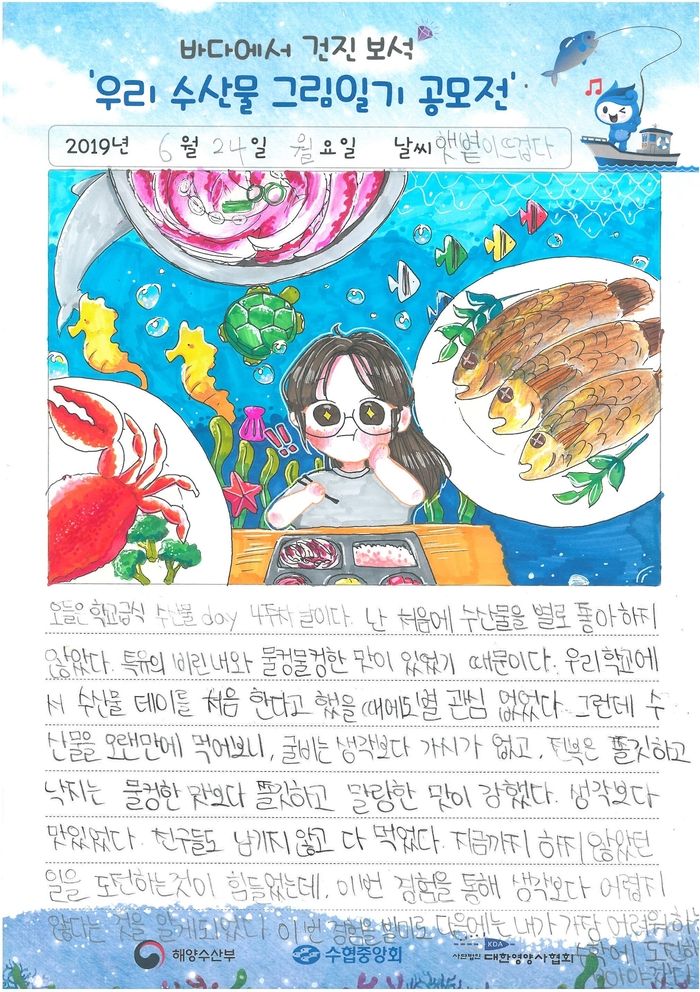 바다에서 건진 보석
'우리 수산물 그림일기 공모전'
2019년 6월 24일 월요일 날씨 햇볕이뜨겁다
!!
오늘은 학교급식 수산물 day 4주차 날이다. 난 처음에 수산물을 별로 좋아하지
않았다. 특유의 비린내와 물컹물컹한 맛이 있었기 때문이다. 우리학교에
서 수산물 데이를 처음 한다고 했을 때에도 별 관심 없었다. 그런데 수
산물을 오랜만에 먹어보니, 굴비는 생각보다 가시가 없고, 전복은 쫄깃하고
낙지는 물컹한 맛보다 쫄깃하고 말랑한 맛이 강했다. 생각보다
맛있었다. 친구들도 남기지 않고 다 먹었다. 지금까지 하지 않았던
일을 도전하는것이 힘들었는데, 이번 경험을 통해 생각보다 어렵지
않다는 것을 알게되었다 이번 경험을 빌미로 다음에는 내가 가장 어려워하는
수학에 도전
해양수산부
수협중앙회
KDA
사단법인 대한영양사협회